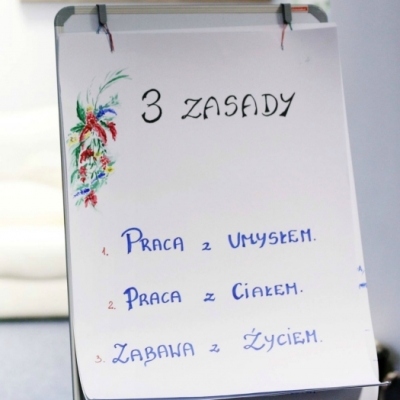 3 ZASADY
1. PRACA Z UMYSŁEM.
2. PRACA Z CIAŁEM.
3. ZABAWA Z ŻYCIEM.